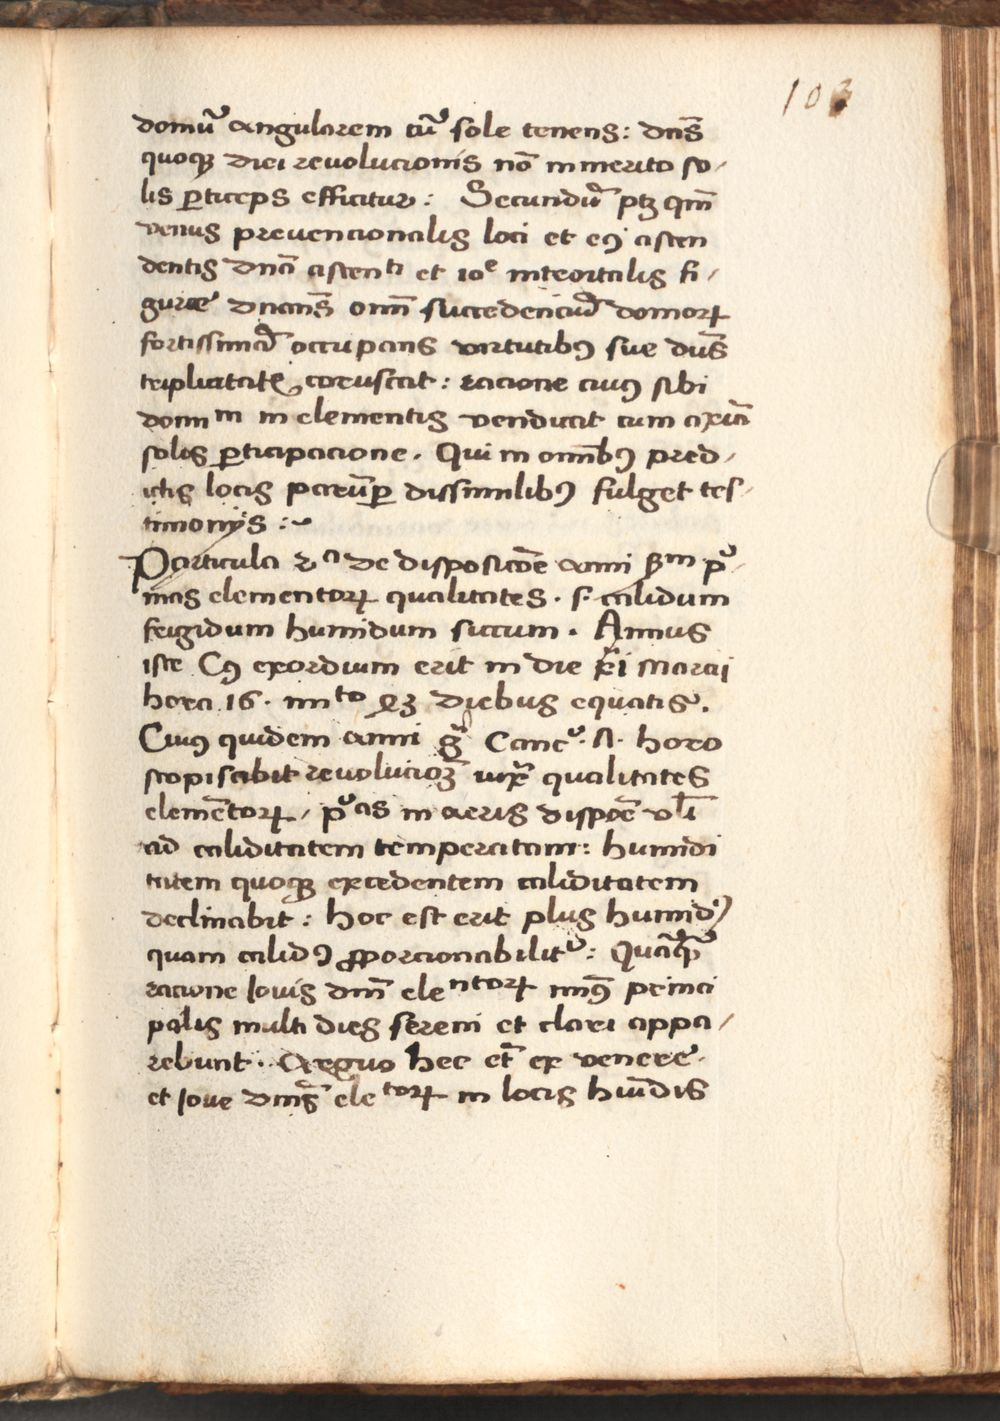 103
domū angularem cū sole tenens: dn̄s
quoqꝫ diei revolucionis nō inmerito so/
lis ꝑticeps efficitur: Secundū ptꝫ qm̄
venus prevencionalis loci et eꝯ ascen
dentis dn̄a ascenti et 10e inteortalis fi/
gurae dn̄ans om̄ succedenciū domorꝝ
fortissimā occupans virtutibꝯ sue dn̄s
triplicitatē coruscat: racione cuiꝯ sibi
domm in elementis vendicat cum
solis ꝑticipacione. Qui in omībꝯ pred/
ictis locis ꝑ dissimilibꝯ fulget tes/
timonijs:~
Particula 2a de disposicōe anni ẜm pͥ/
mas elementorꝝ qualitates. s. calidum
frigidum humidum siccum. Annus
iste Cꝯ exordium erit in die Marcij
hora 16. mto 43 diebus equatis.
Cuiꝯ quidem anni gͣ Cancͥ. A. horo
scopisabit revolucioꝫ qualitates
elemētorꝝ / pͥas in aeris dispōe vl̄i
ad caliditatem temperatam: humidi
tatem quoqꝫ excedentem caliditatem
declinabit: hoc est erit plus humidꝯ
quam calidꝯ ꝓporcionabilitͬ: Quāqꝫ
racione Iovis dn̄i elentorꝝ minꝯ princi
palis multi dies sereni et clari appa/
rebunt. Arguo hec et̄ ex venere
et Iove dn̄is eletorꝝ in locis hūidis